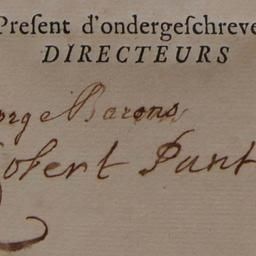 Present d'ondergeſchreve
DIRECTEURS
orge Barons
obert Punt